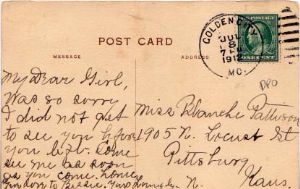 POST CARD
MESSAGE
ADDRESS
GOLDEN
JUL
8
191
MO.
ONE CENT
DPO
My Dear Girl,
was so sorry
I did not get
to see you before
you left. Come
see me as soon
as you come home
Miss Blanche Pattison
905 N. Locust St
Pittsburg
Kans.